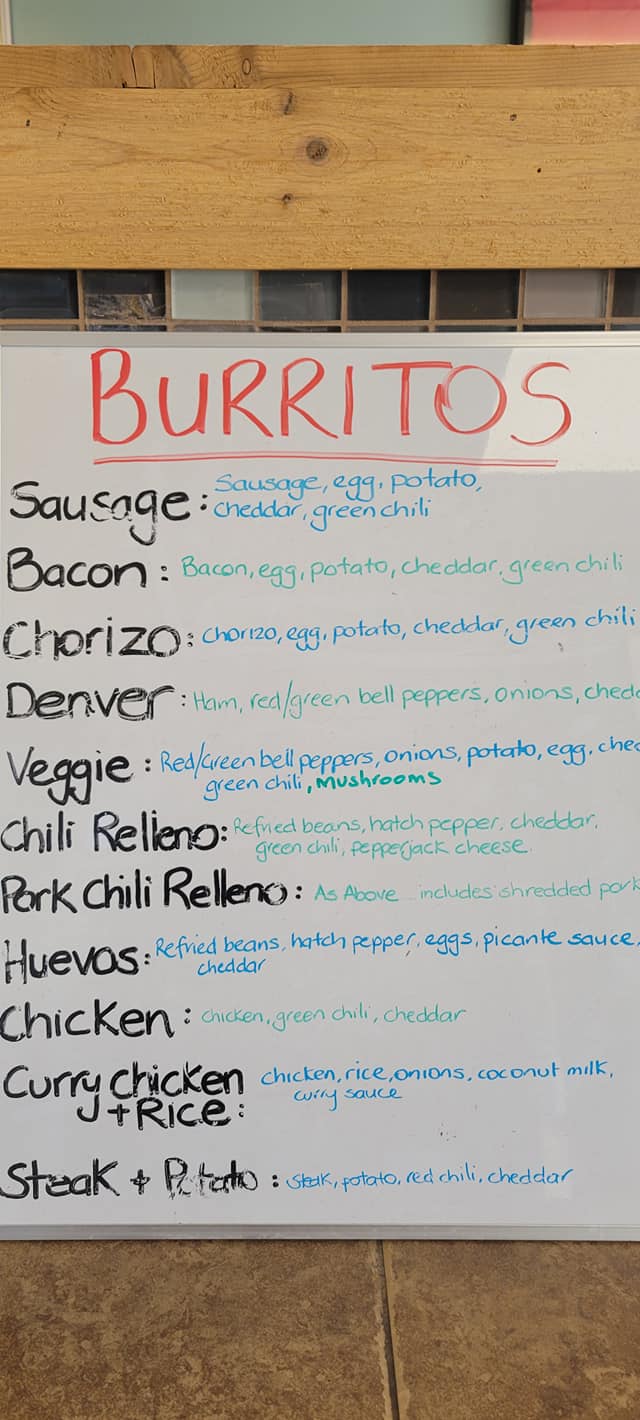 BURRITOS
Sausage: Sausage, egg, potato,
cheddar, green chili
Bacon: Bacon, egg, potato, cheddar, green chili
Chorizo: Chorizo, egg, potato, cheddar, green chili
Denver: Ham, red/green bell peppers, onions, chedd
Veggie: Red/Green bell peppers, onions, potato, egg, ched
green chili, mushrooms
Chili Relleno: Refried beans, hatch pepper, cheddar,
green chili, pepperjack cheese.
Pork Chili Relleno: As Above includes shredded pork
Huevos: Refried beans, hatch pepper, eggs, picante sauce,
cheddar
Chicken: chicken, green chili, cheddar
Curry chicken chicken, rice, onions, coconut milk,
+ Rice: curry sauce
Steak + Potato: steak, potato, red chili, cheddar